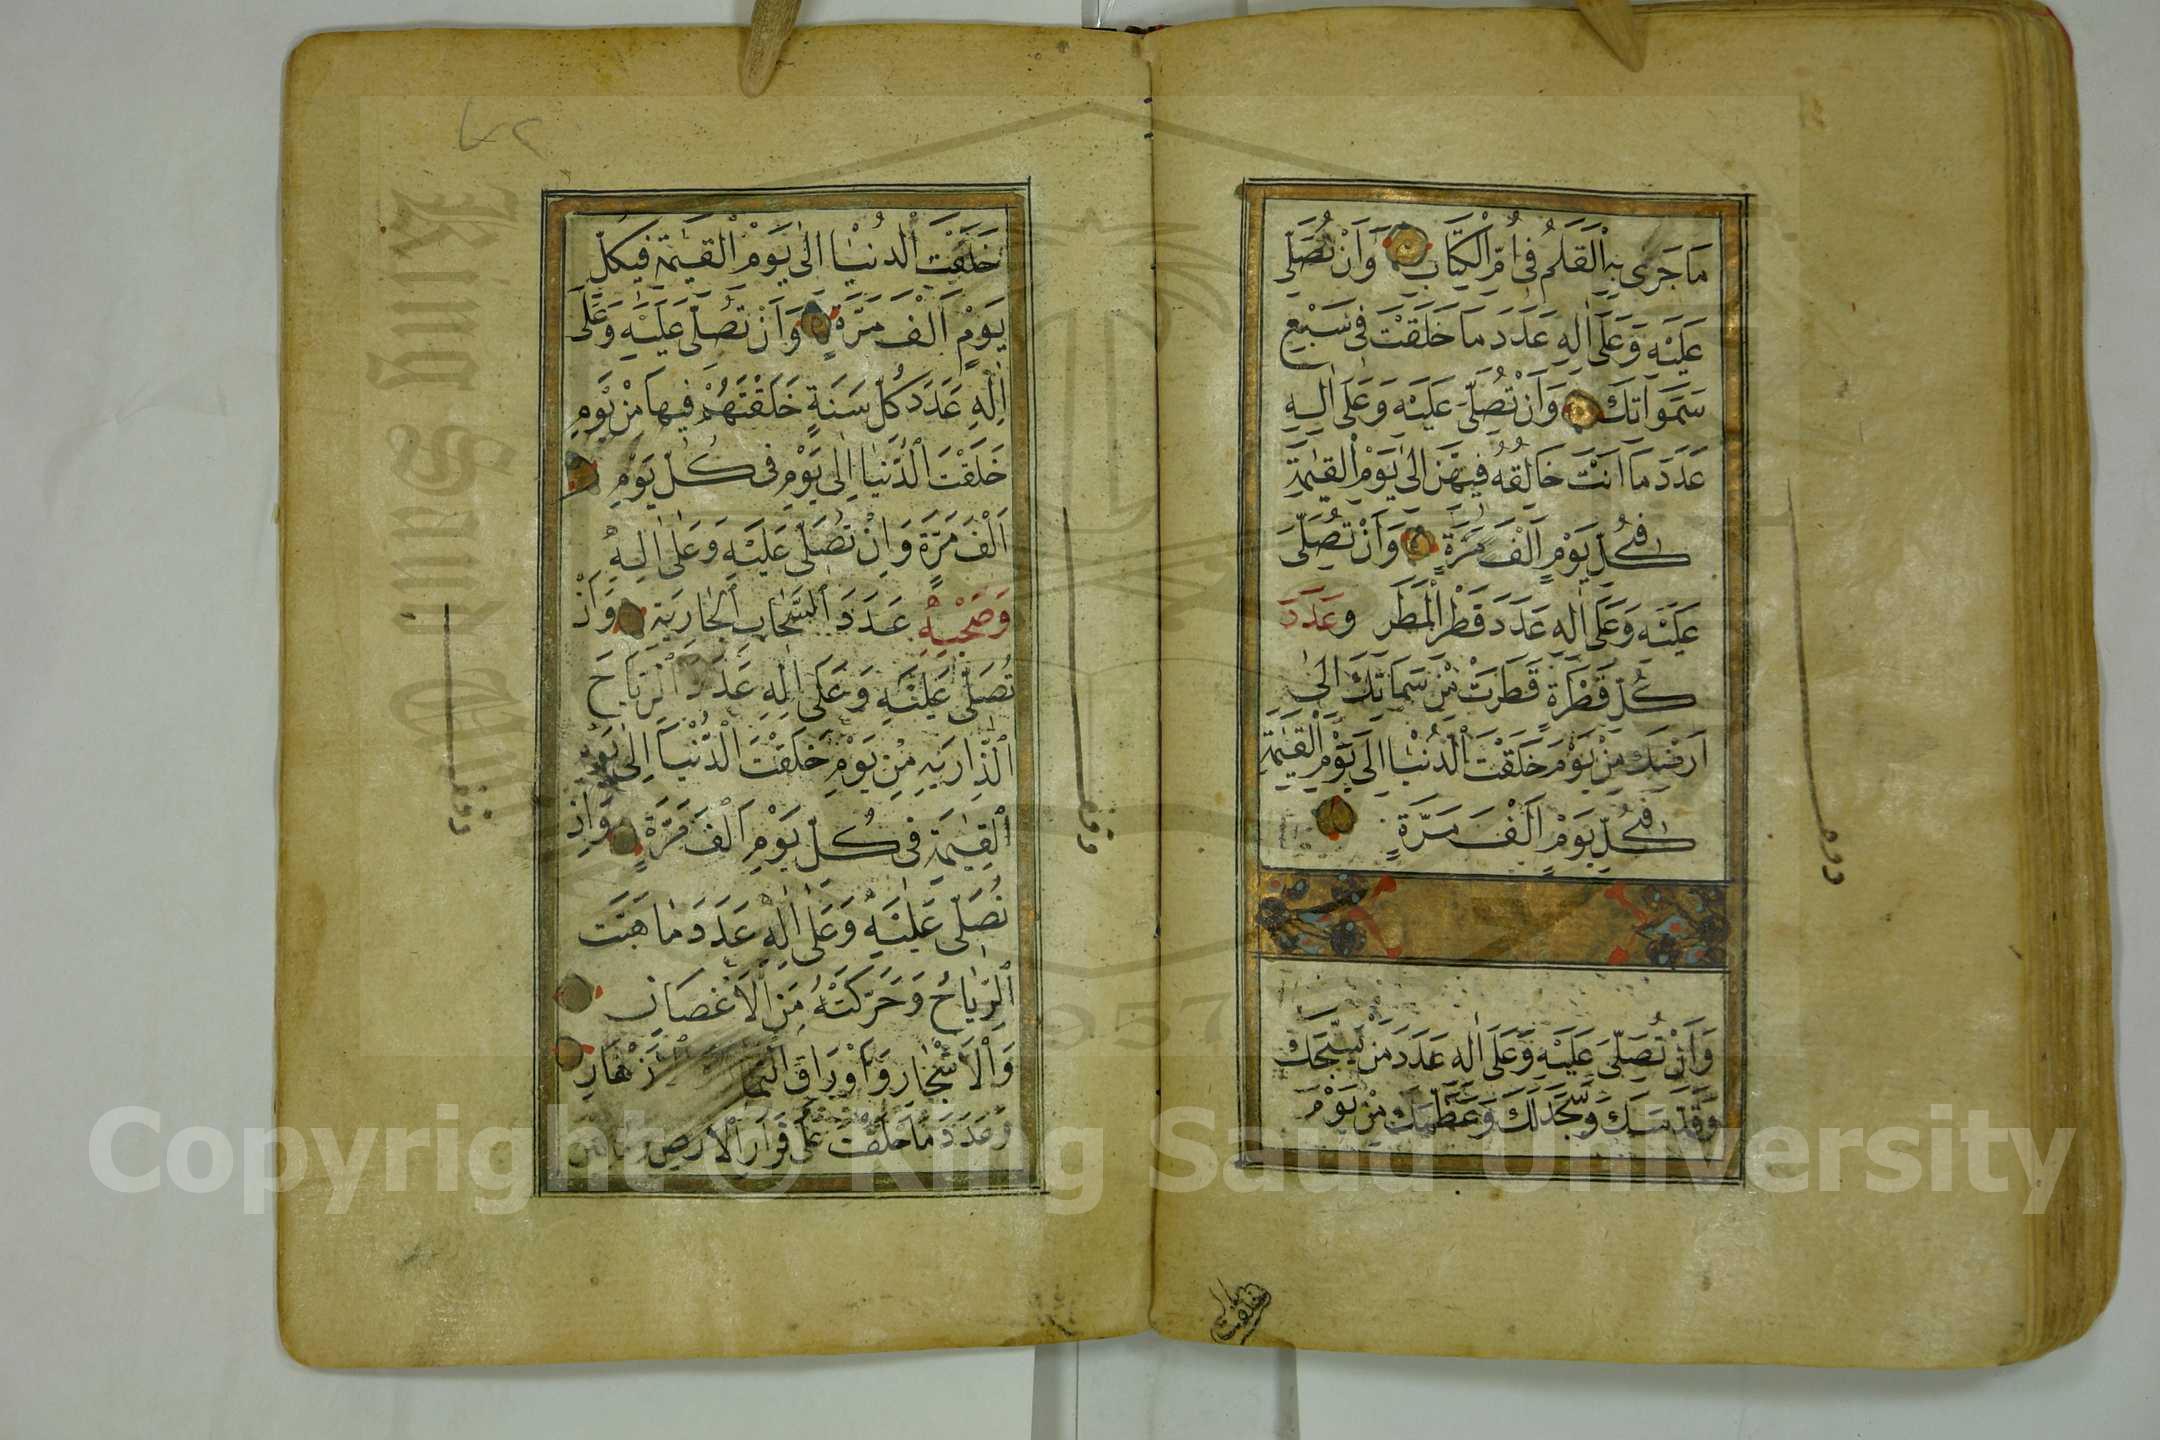 مَا جَرٰى بِهِ الْقَلَمُ فِى اُمِّ الْكِتَابِ وَاَنْ تُصَلِّىَ
عَلَيْهِ وَعَلٰى اٰلِهِ عَدَدَ مَا خَلَقْتَ فِى سَبْعِ
سَمَوَاتِكَ وَاَنْ تُصَلِّىَ عَلَيْهِ وَعَلٰى اٰلِهِ
عَدَدَ مَا اَنْتَ خَالِقُهُ فِيهِنَّ اِلٰى يَوْمِ الْقِيٰمَةِ
فِى كُلِّ يَوْمٍ اَلْفَ مَرَّةٍ وَاَنْ تُصَلِّىَ
عَلَيْهِ وَعَلٰى اٰلِهِ عَدَدَ قَطْرِ الْمَطَرِ وَعَدَدَ
كُلِّ قَطْرَةٍ قَطَرَتْ مِنْ سَمَائِكَ اِلٰى
اَرْضِكَ مِنْ يَوْمِ خَلَقْتَ الدُّنْيَا اِلٰى يَوْمِ الْقِيٰمَةِ
فِى كُلِّ يَوْمٍ اَلْفَ مَرَّةٍ
وَاَنْ تُصَلِّىَ عَلَيْهِ وَعَلٰى اٰلِهِ عَدَدَ مَنْ يُسَبِّحُكَ
وَقَدَّسَكَ وَسَجَدَ لَكَ وَعَظَّمَكَ مِنْ يَوْمِ
خلقت
وقف
خَلَقْتَ الْدُنْيَا اِلٰى يَوْمِ الْقِيٰمَةِ فِى كُلِّ
يَوْمٍ اَلْفَ مَرَّةٍ وَاَنْ تُصَلِّىَ عَلَيْهِ وَعَلٰى
اٰلِهِ عَدَدَ كُلِّ سَنَةٍ خَلَقْتَهُمْ فِيهَا مِنْ يَوْمِ
خَلَقْتَ الدُّنْيَا اِلٰى يَوْمِ فِى كُلِّ يَوْمٍ
اَلْفَ مَرَّةٍ وَاَنْ تُصَلِّىَ عَلَيْهِ وَعَلٰى اٰلِهِ
وَصَحْبِهِ عَدَدَ السَّحَابِ الْجَارِيَةِ وَاَنْ
تُصَلِّىَ عَلَيْهِ وَعَلٰى اٰلِهِ عَدَدَ الرِّيَاحِ
الذَّارِيَةِ مِنْ يَوْمِ خَلَقْتَ الدُّنْيَا اِلٰى يَوْمِ
الْقِيٰمَةِ فِى كُلِّ يَوْمٍ اَلْفَ مَرَّةٍ وَاَنْ
تُصَلِّىَ عَلَيْهِ وَعَلٰى اٰلِهِ عَدَدَ مَا هَبَّتْ
الرِّيَاحُ وَحَرَّكَتْهُ مِنَ الْاَغْصَانِ
وَالْاَشْجَارِ وَاَوْرَاقِ الثِّمَارِ الْاَزْهَارِ
وَعَدَدَ مَا خَلَقْتَ عَلٰى قَرَارِ الْاَرْضِ
وقف
وقف
Copyright © King Saud University
King Saud University
1957